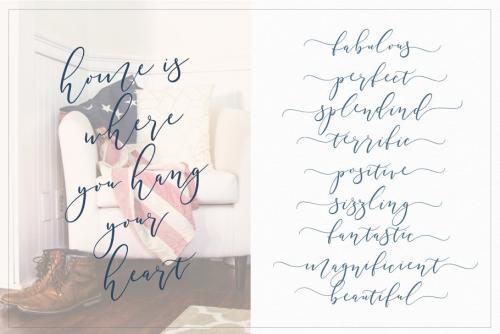 home is
where
you hang
your
heart
fabulous
perfect
splendind
terrific
positive
sizzling
fantastic
magnificient
beautiful